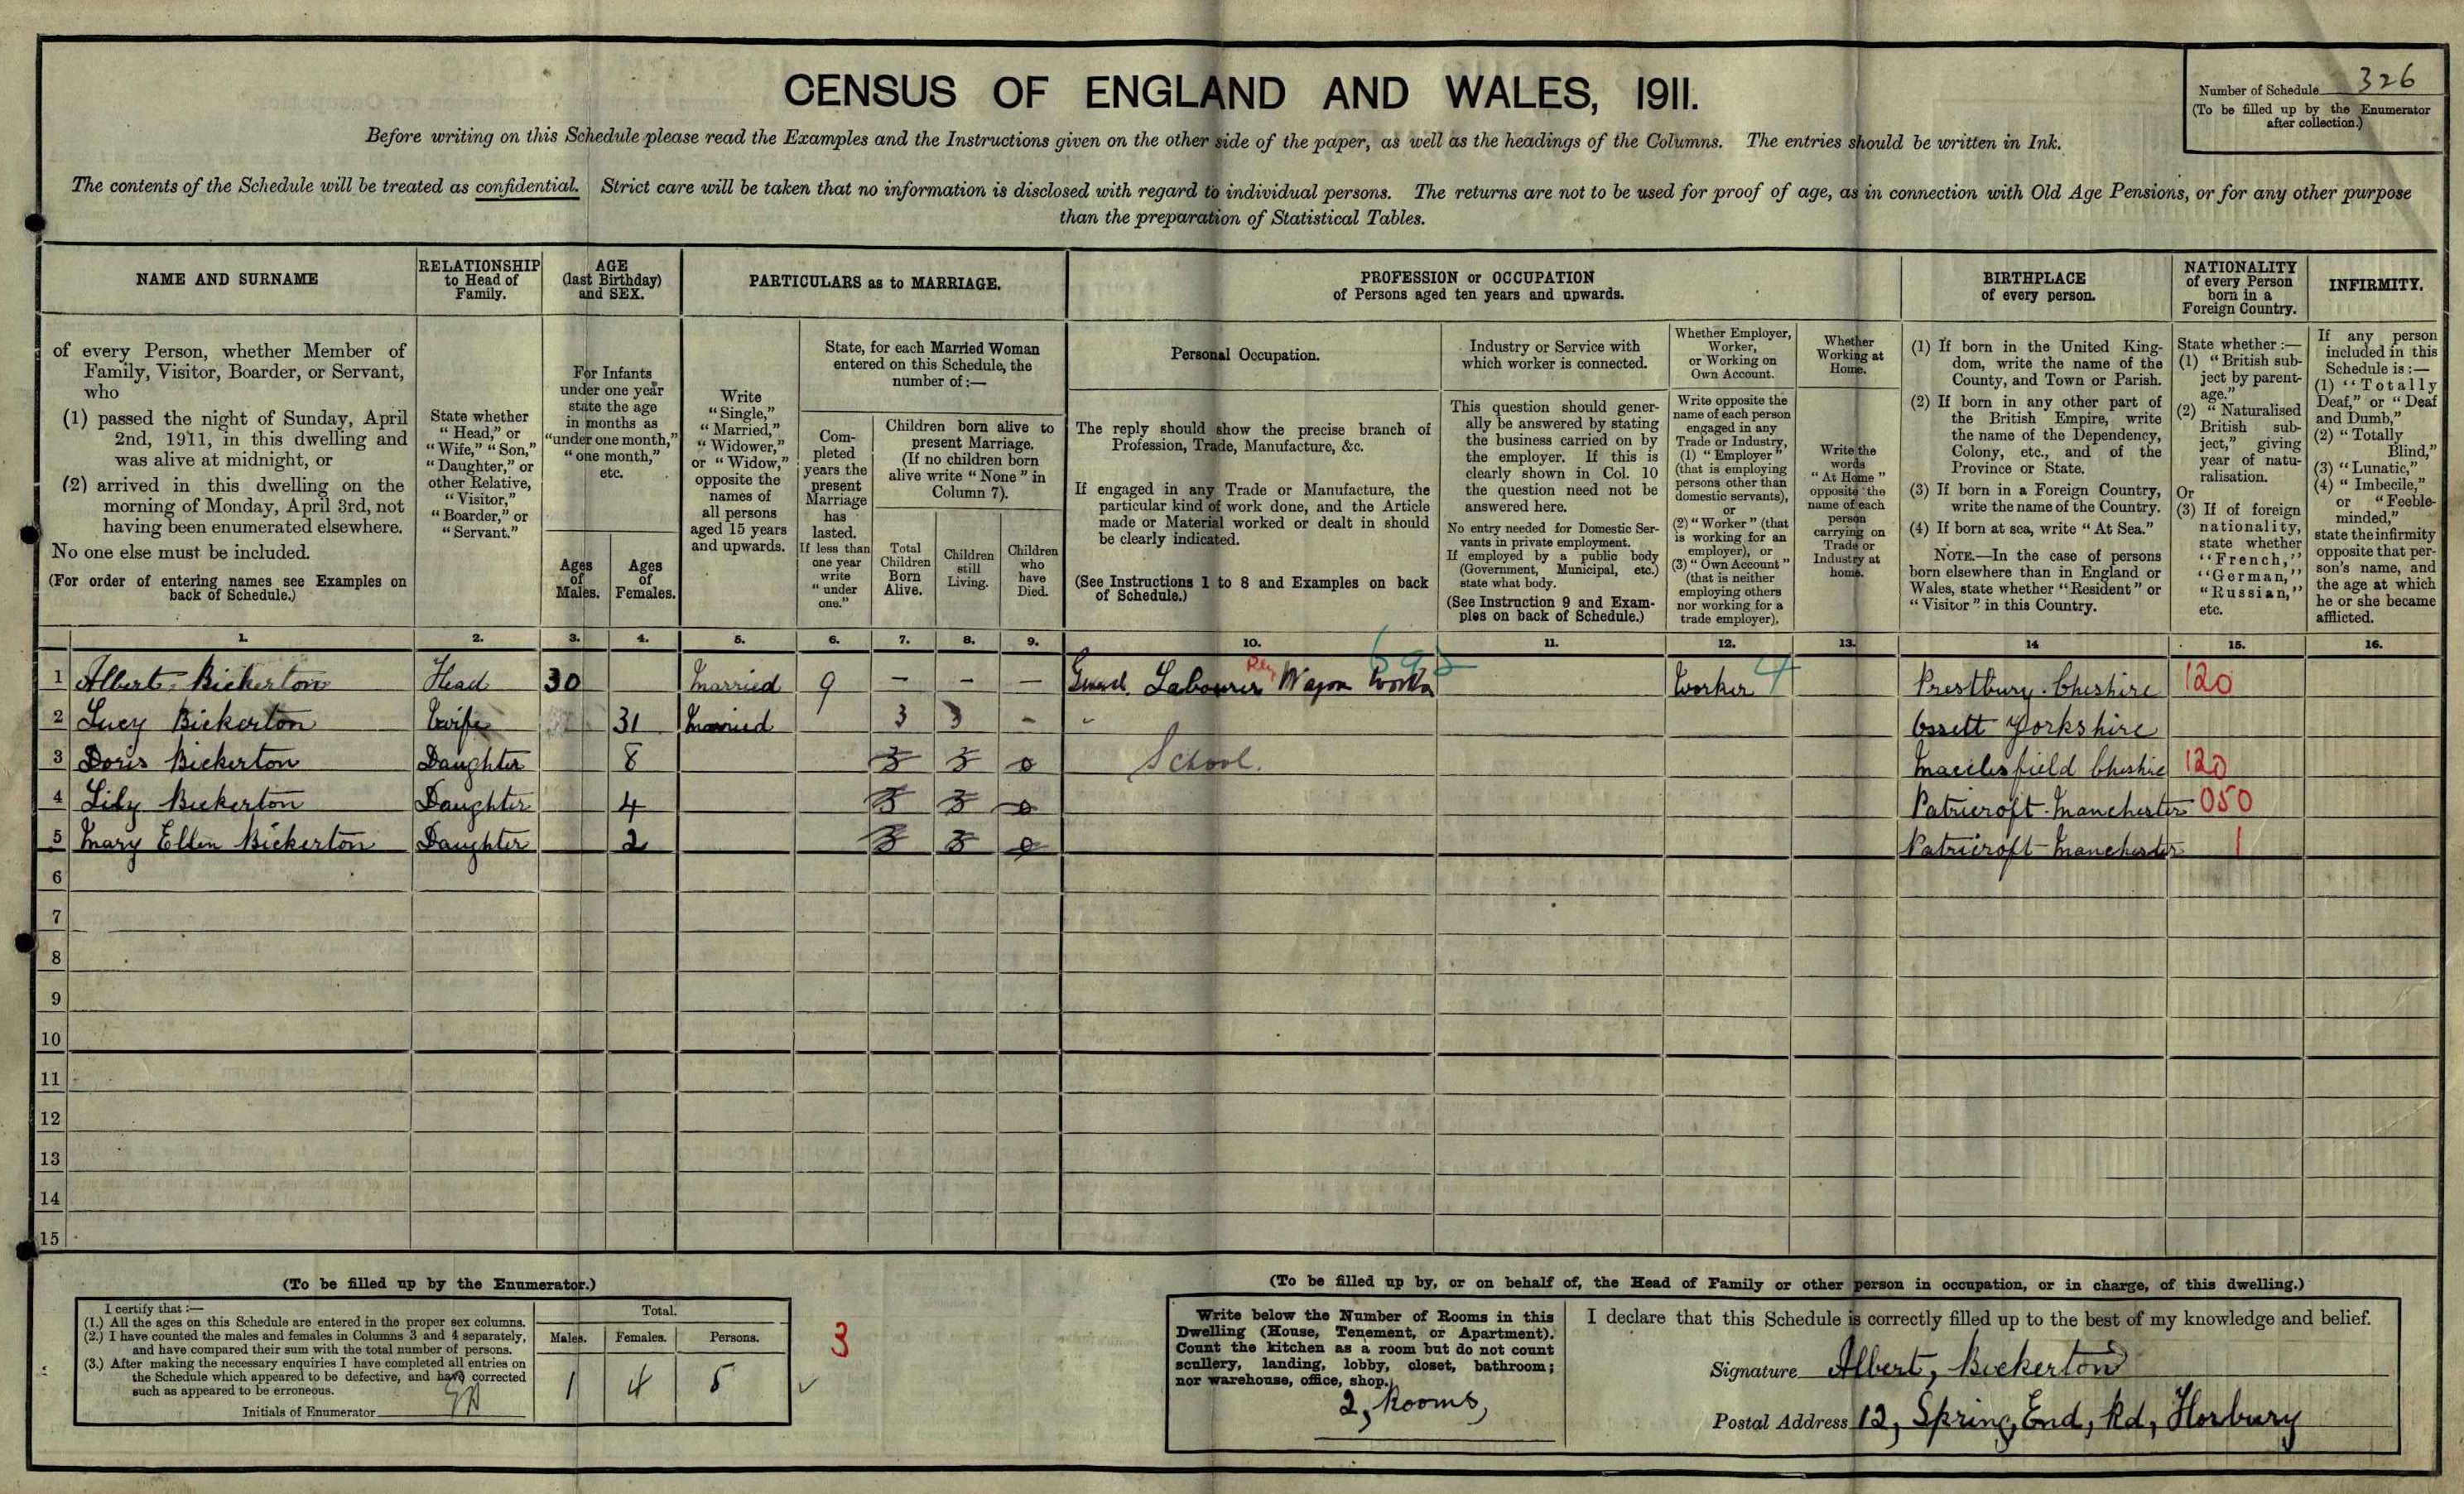 CENSUS OF ENGLAND AND WALES, 1911.
Number of Schedule 326
(To be filled up by the Enumerator
after collection.)
Before writing on this Schedule please read the Examples and the Instructions given on the other side of the paper, as well as the headings of the Columns. The entries should be written in Ink.
The contents of the Schedule will be treated as confidential. Strict care will be taken that no information is disclosed with regard to individual persons. The returns are not to be used for proof of age, as in connection with Old Age Pensions, or for any other purpose
than the preparation of Statistical Tables.
NAME AND SURNAME
of every Person, whether Member of
Family, Visitor, Boarder, or Servant,
who
(1) passed the night of Sunday, April
2nd, 1911, in this dwelling and
was alive at midnight, or
(2) arrived in this dwelling on the
morning of Monday, April 3rd, not
having been enumerated elsewhere.
No one else must be included.
(For order of entering names see Examples on
back of Schedule.)
RELATIONSHIP
to Head of
Family.
State whether
"Head," or
"Wife," "Son,"
"Daughter," or
other Relative,
"Visitor,"
"Boarder," or
"Servant."
AGE
(last Birthday)
and SEX.
For Infants
under one year
state the age
in months as
"under one month,"
"one month,"
etc.
Ages
of
Males.
Ages
of
Females.
PARTICULARS as to MARRIAGE.
Write
"Single,"
"Married,"
"Widower,"
or "Widow,"
opposite the
names of
all persons
aged 15 years
and upwards.
State, for each Married Woman
entered on this Schedule, the
number of:—
Com-
pleted
years the
present
Marriage
has
lasted.
If less than
one year
write
"under
one."
Children born alive to
present Marriage.
(If no children born
alive write "None" in
Column 7).
Total
Children
Born
Alive.
Children
still
Living.
Children
who
have
Died.
PROFESSION or OCCUPATION
of Persons aged ten years and upwards.
Personal Occupation.
The reply should show the precise branch of
Profession, Trade, Manufacture, &c.
If engaged in any Trade or Manufacture, the
particular kind of work done, and the Article
made or Material worked or dealt in should
be clearly indicated.
(See Instructions 1 to 8 and Examples on back
of Schedule.)
Industry or Service with
which worker is connected.
This question should gener-
ally be answered by stating
the business carried on by
the employer. If this is
clearly shown in Col. 10
the question need not be
answered here.
No entry needed for Domestic Ser-
vants in private employment.
If employed by a public body
(Government, Municipal, etc.)
state what body.
(See Instruction 9 and Exam-
ples on back of Schedule.)
Whether Employer,
Worker,
or Working on
Own Account.
Write opposite the
name of each person
engaged in any
Trade or Industry,
(1) "Employer"
(that is employing
persons other than
domestic servants),
or
(2) "Worker" (that
is working for an
employer), or
(3) "Own Account"
(that is neither
employing others
nor working for a
trade employer).
Whether
Working at
Home.
Write the
words
"At Home"
opposite the
name of each
person
carrying on
Trade or
Industry at
home.
BIRTHPLACE
of every person.
(1) If born in the United King-
dom, write the name of the
County, and Town or Parish.
(2) If born in any other part of
the British Empire, write
the name of the Dependency,
Colony, etc., and of the
Province or State.
(3) If born in a Foreign Country,
write the name of the Country.
(4) If born at sea, write "At Sea."
NOTE.—In the case of persons
born elsewhere than in England or
Wales, state whether "Resident" or
"Visitor" in this Country.
NATIONALITY
of every Person
born in a
Foreign Country.
State whether :—
(1) "British sub-
ject by parent-
age."
(2) "Naturalised
British sub-
ject," giving
year of natu-
ralisation.
Or
(3) If of foreign
nationality,
state whether
"French,"
"German,"
"Russian,"
etc.
INFIRMITY.
If any person
included in this
Schedule is:—
(1) "Totally
Deaf," or "Deaf
and Dumb,"
(2) "Totally
Blind,"
(3) "Lunatic,"
(4) "Imbecile,"
or "Feeble-
minded,"
state the infirmity
opposite that per-
son's name, and
the age at which
he or she became
afflicted.
1. 2. 3. 4. 5. 6. 7. 8. 9. 10. 11. 12. 13. 14 15. 16.
1 Albert, Bickerton Head 30 Married 9 – – – Labourer Rly Wagon Works Worker 4 Prestbury Cheshire 120
2 Lucy Bickerton Wife 31 Married 3 3 - Ossett Yorkshire
3 Doris Bickerton Daughter 8 3 3 0 School. Macclesfield Cheshire 120
4 Lily Bickerton Daughter 4 3 3 0 Patricroft Manchester 050
5 Mary Ellen Bickerton Daughter 2 3 3 0 Patricroft Manchester 1
6
7
8
9
10
11
12
13
14
15
(To be filled up by the Enumerator.)
I certify that :—
(1.) All the ages on this Schedule are entered in the proper sex columns.
(2.) I have counted the males and females in Columns 3 and 4 separately,
and have compared their sum with the total number of persons.
(3.) After making the necessary enquiries I have completed all entries on
the Schedule which appeared to be defective, and have corrected
such as appeared to be erroneous.
Initials of Enumerator
Total.
Males. Females. Persons.
1 4 5
3
(To be filled up by, or on behalf of, the Head of Family or other person in occupation, or in charge, of this dwelling.)
Write below the Number of Rooms in this
Dwelling (House, Tenement, or Apartment).
Count the kitchen as a room but do not count
scullery, landing, lobby, closet, bathroom;
nor warehouse, office, shop.
2, Rooms,
I declare that this Schedule is correctly filled up to the best of my knowledge and belief.
Signature Albert, Bickerton
Postal Address 12, Spring, End, Rd, Horbury